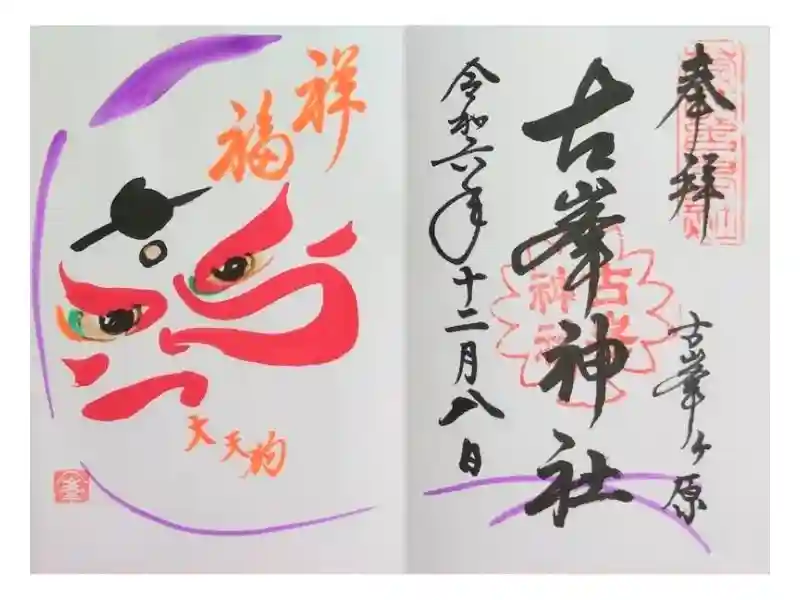 奉拝
古峯ヶ原
古峯神社
古峯神社
令和六年十二月八日
祥福
大天狗